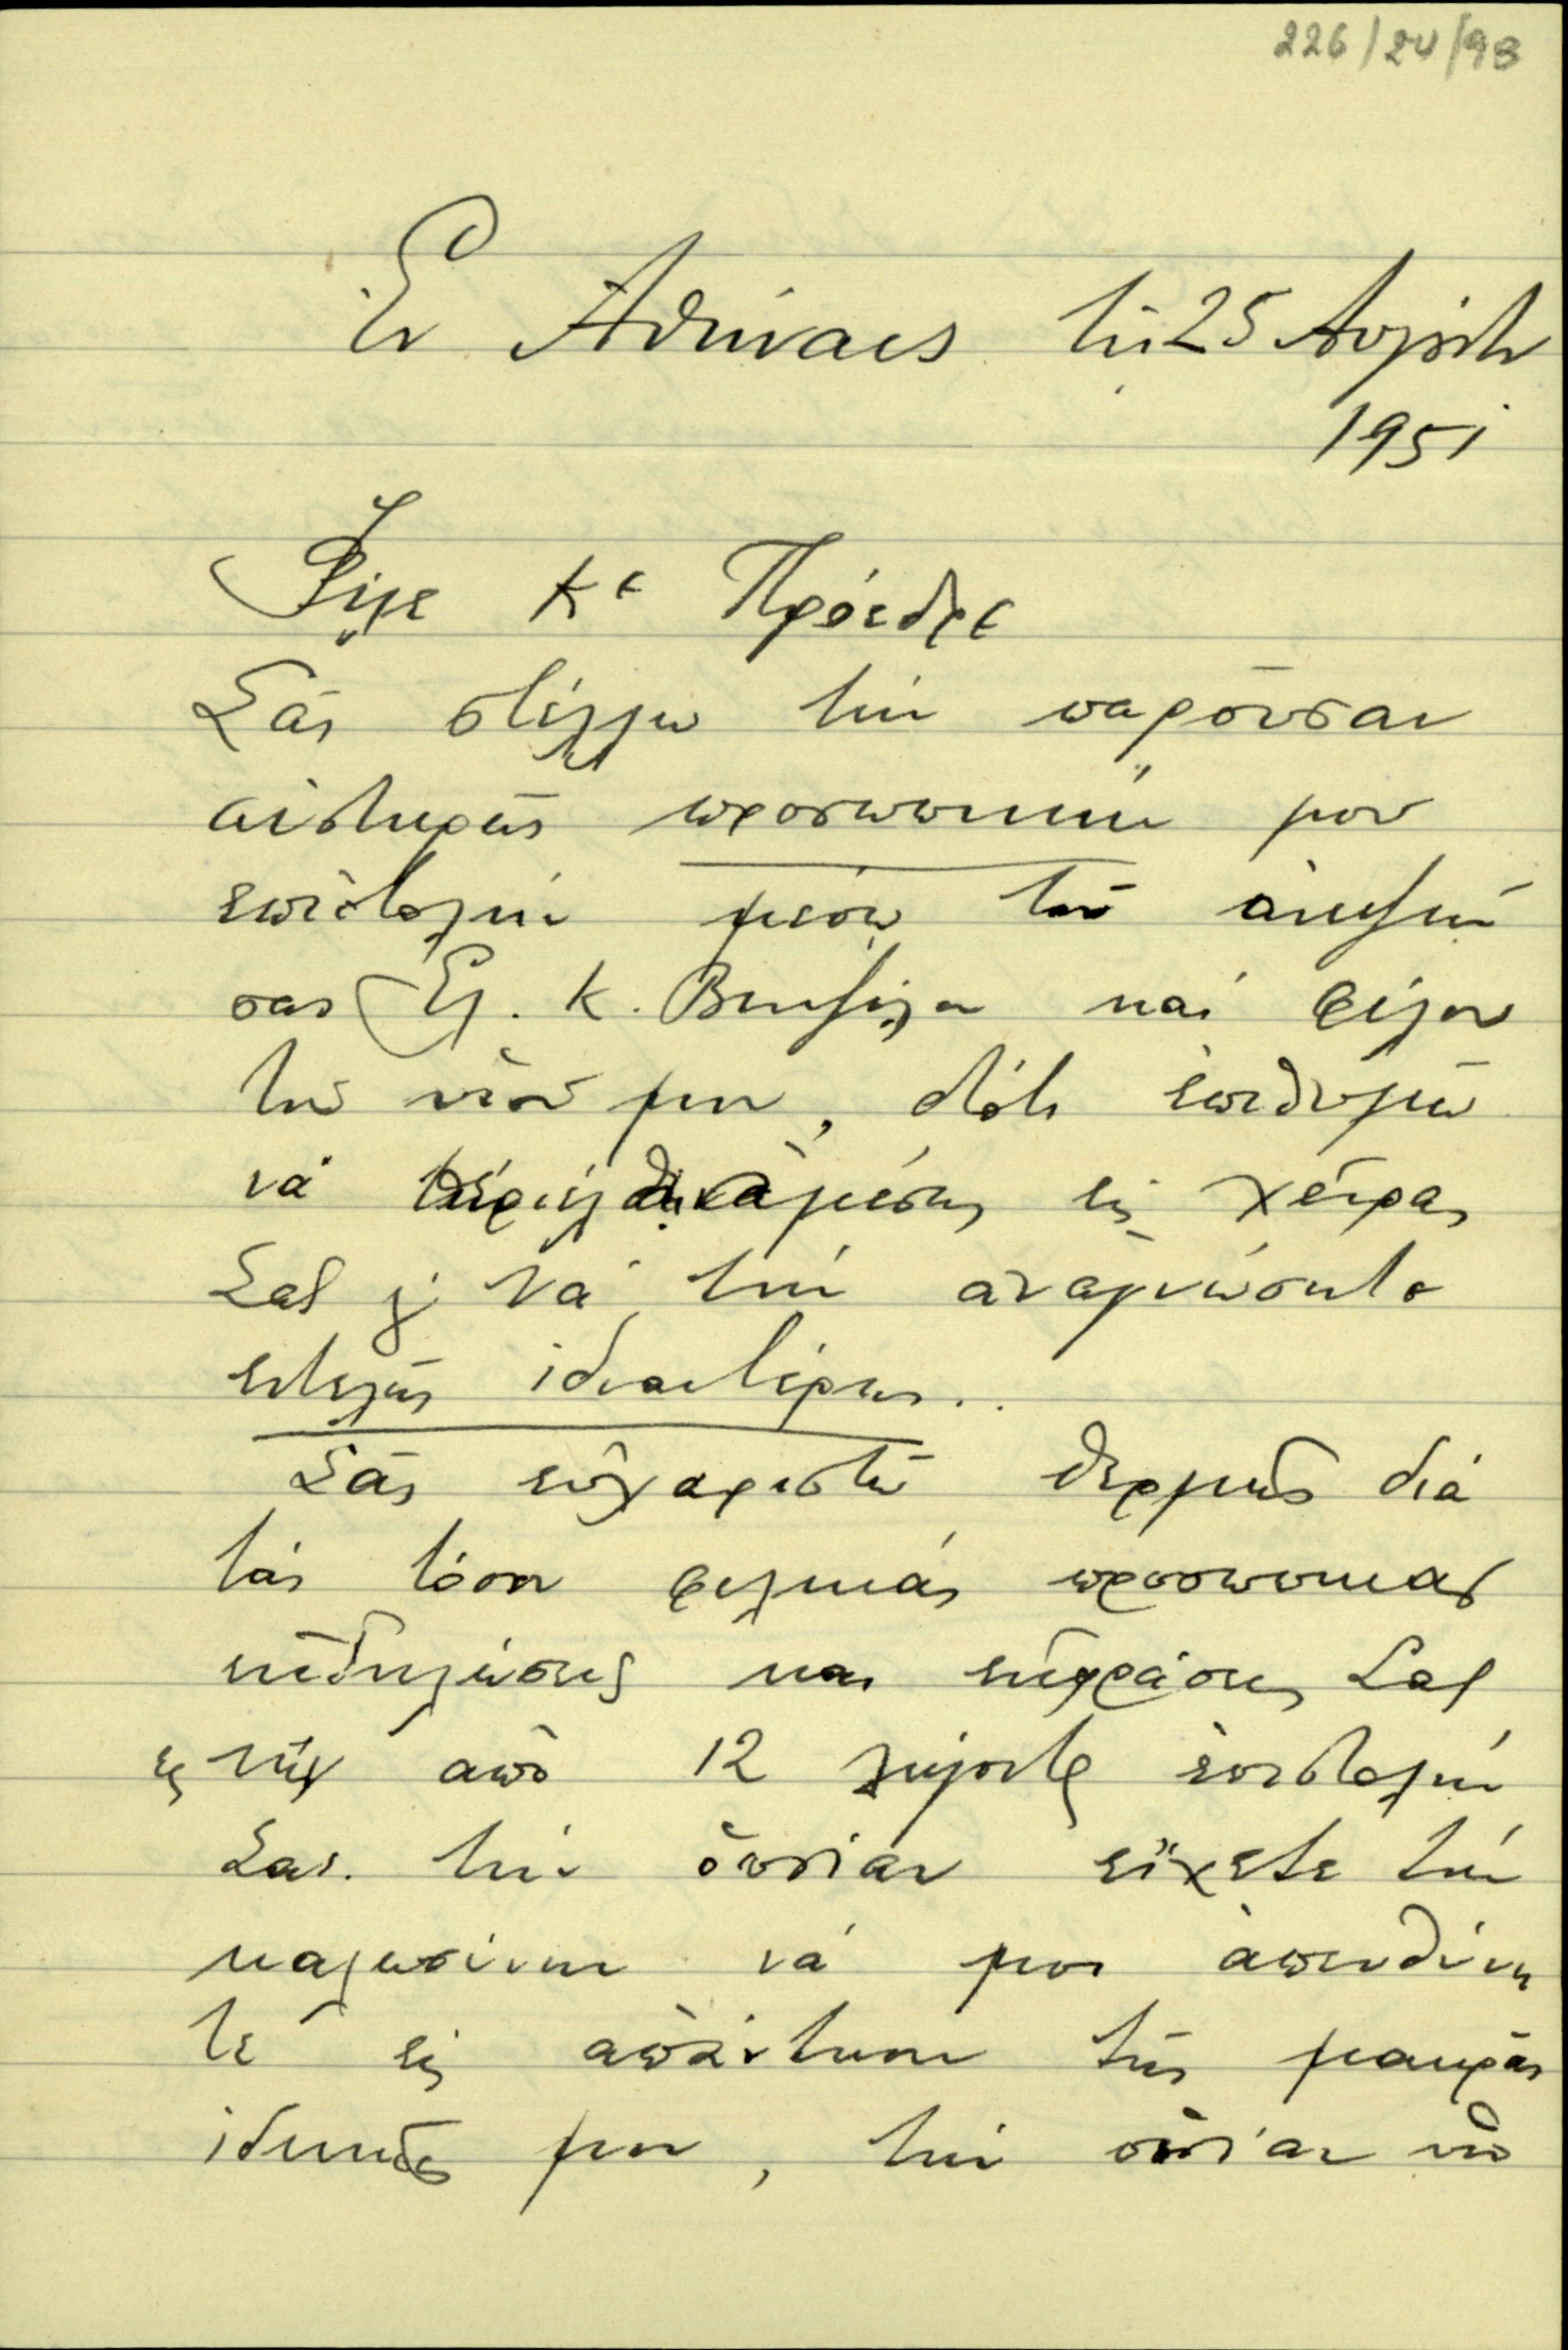 226/20/98
Ἐν Ἀθήναις τῇ 25 Αυγούστου
1951
Φίλε Κε Πρόεδρε
Σᾶς στέλλω τὴν παροῦσαν
αὐστηρῶς προσωπικήν μου
επιστολὴν μέσῳ τοῦ ἀνεψιοῦ
σας Ελ. Κ. Βενιζέλου καὶ φίλου
τοῦ υἱοῦ μου, διότι ἐπιθυμῶ
νὰ ἀμέσως εἰς χεῖρας
Σας νὰ τὴν αναγνώσητε
εντελῶς ἰδιαιτέρως..
Σᾶς εὐχαριστῶ θερμῶς διὰ
τὰς τόσον φιλικὰς προσωπικας
εκδηλώσεις και εκφράσεις Σας
εις την απὸ 12 λήγοντος ἐπιστολὴν
Σας. τὴν ὁποίαν εἴχετε τὴν
καλωσύνην νά μου ἀπευθύνη
τε εἰς απάντησιν τῆς μακρᾶς
ἰδικῆς μου, τὴν ὁποίαν υπὸ